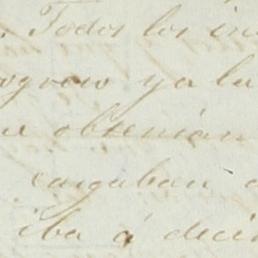 . Todos los in
ya la
obtenian
cargaban
iba á deci